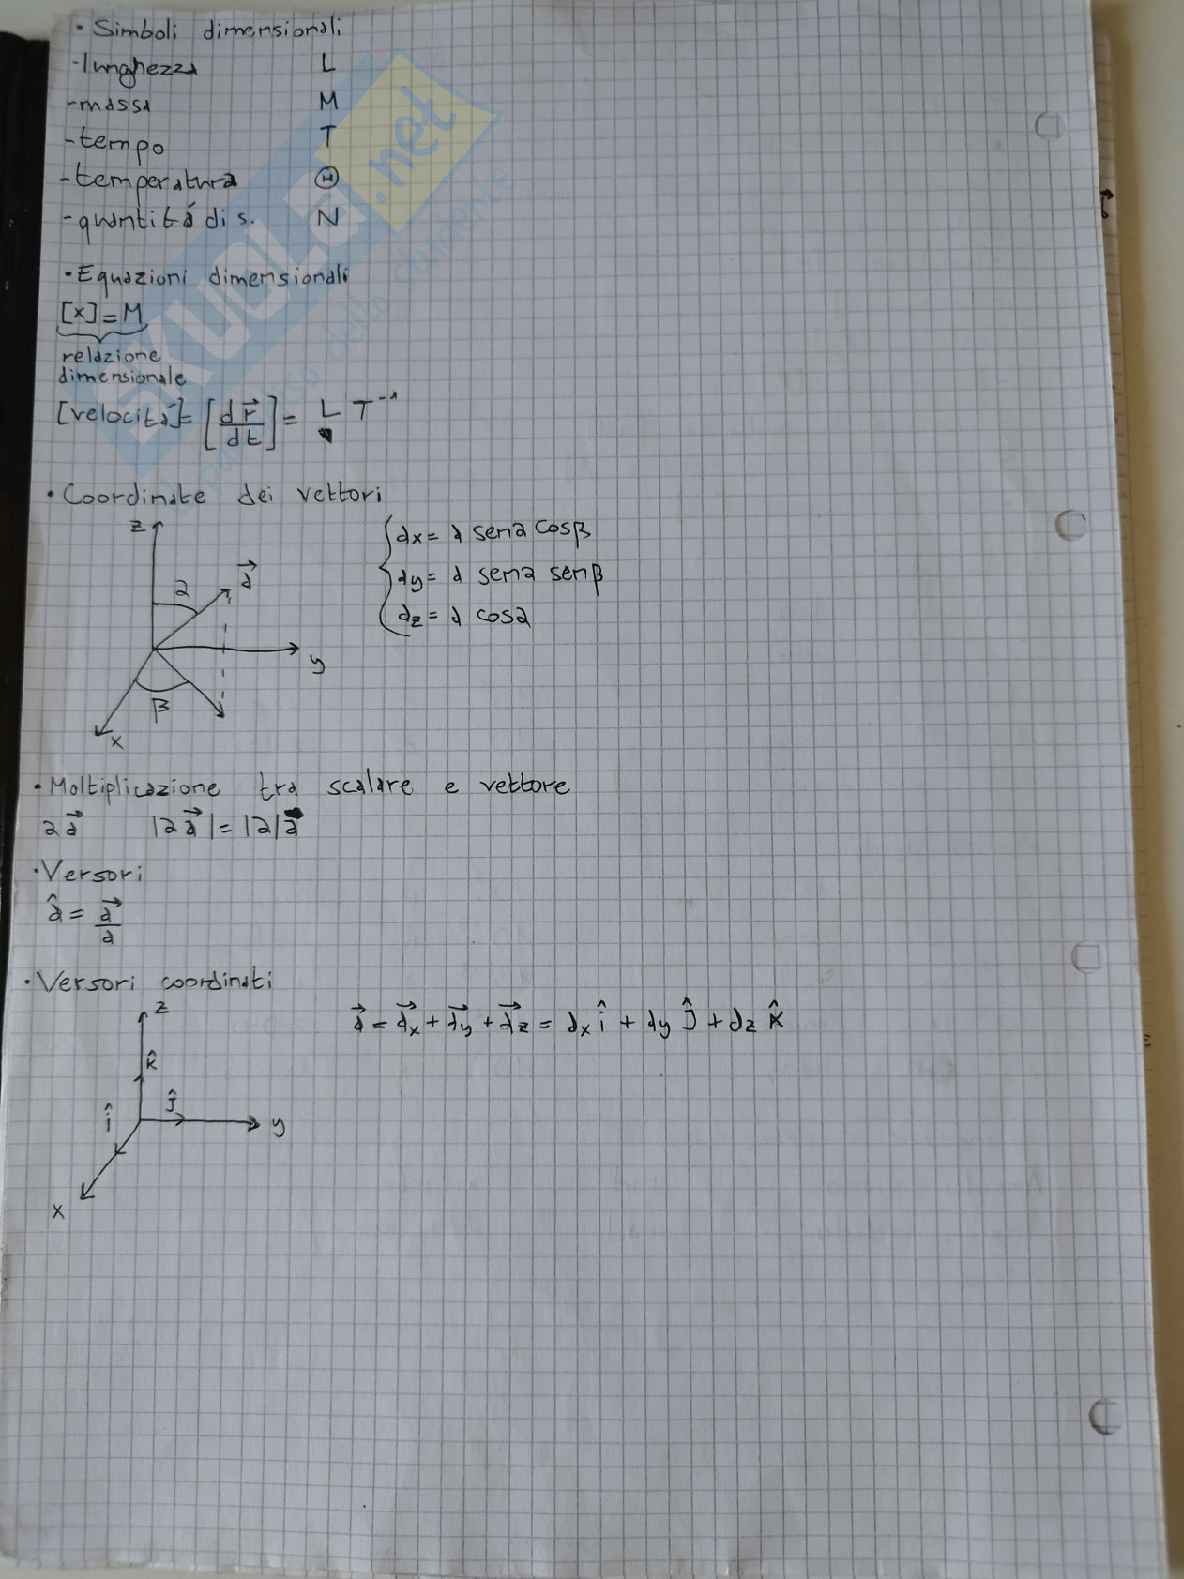 • Simboli dimensionali
-lunghezza L
-massa M
-tempo T
-temperatura Θ
-quantitá di s. N
• Equazioni dimensionali
[x]=M
relazione
dimensionale
[velocitá]=[dr⃗/dt]= L T⁻¹
• Coordinate dei vettori
z
α
a⃗
y
β
x
ax= a senα cosβ
ay= a senα senβ
az= a cosα
• Moltiplicazione tra scalare e vettore
αa⃗ |αa⃗|=|α|a
• Versori
â = a⃗/a
• Versori coordinati
z
k̂
ĵ
î
y
x
a⃗ = a⃗x + a⃗y + a⃗z = ax î + ay ĵ + az k̂
SKUOLA.net